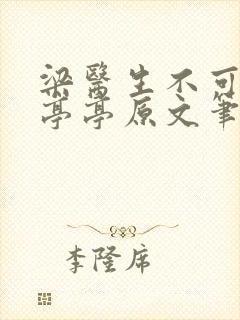 梁醫生不可
亭亭原文筆
李隆席